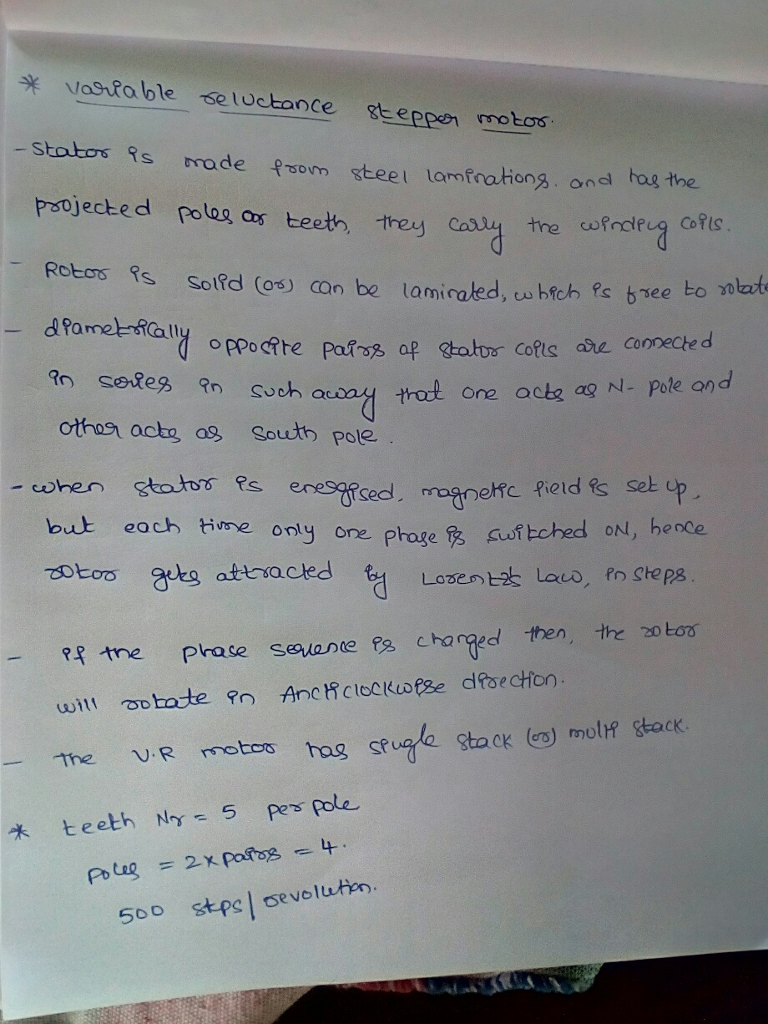 * Variable reluctance stepper motor.
- Stator is made from steel laminations. and has the
projected poles or teeth, they carry the winding coils.
- Rotor is solid (or) can be laminated, which is free to rotate
- diametrically opposite pairs of stator coils are connected
in series in such away that one acts as N- pole and
other acts as south pole.
- when stator is energised, magnetic field is set up,
but each time only one phase is switched ON, hence
rotor gets attracted by Lorentz's Law, in steps.
- if the phase sequence is changed then, the rotor
will rotate in Anticlockwise direction.
- The V.R motor has single stack (or) multi stack.
* teeth Nr = 5 per pole
poles = 2 x pairs = 4.
500 steps / revolution.